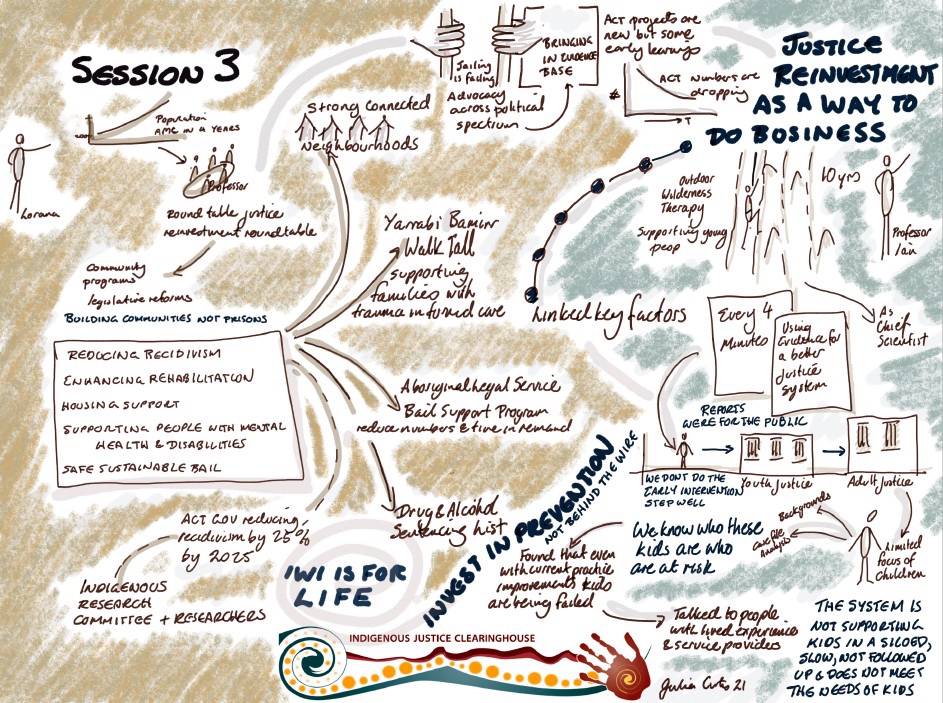 SESSION 3
Population
AMC in 4 years
Lorana
Professor
Round table justice
reinvestment roundtable
Community
programs
legislative reforms
BUILDING COMMUNITIES NOT PRISONS
REDUCING RECIDIVISM
ENHANCING REHABILITATION
HOUSING SUPPORT
SUPPORTING PEOPLE WITH MENTAL
HEALTH & DISABILITIES
SAFE SUSTAINABLE BAIL
ACT GOV reducing
recidivism by 25%
by 2025
INDIGENOUS
RESEARCH
COMMITTEE + RESEARCHERS
Strong Connected
Neighbourhoods
Yarrabi Bamirr
Walk Tall
supporting
families with
trauma informed care
Aboriginal Legal Service
Bail Support Program
reduce numbers & time in remand
Drug & Alcohol
Sentencing List
IWI IS FOR
LIFE
Jailing
is failing
Advocacy
across political
spectrum
BRINGING
IN EVIDENCE
BASE
ACT projects are
new but some
early learnings
ACT numbers are
dropping
$
T
JUSTICE
REINVESTMENT
AS A WAY TO
DO BUSINESS
Linked key factors
Outdoor
Wilderness
Therapy
Supporting young
peop
10 yrs
Professor
Ian
As
Chief
Scientist
Every 4
Minutes
Using
Evidence for
a better
Justice
System
REPORTS
WERE FOR THE PUBLIC
WE DONT DO THE
EARLY INTERVENTION
STEP WELL
Youth Justice
Adult Justice
Backgrounds
Case file
Analysis
Limited
focus of
Children
We know who these
kids are who
are at risk
INVEST IN PREVENTION
NOT BEHIND THE WIRE
Found that even
with current practice
improvements kids
are being failed
Talked to people
with lived experience
& service provides
THE SYSTEM IS
NOT SUPPORTING
KIDS IN A SILOED,
SLOW, NOT FOLLOWED
UP & DOES NOT MEET
THE NEEDS OF KIDS
INDIGENOUS JUSTICE CLEARINGHOUSE
21